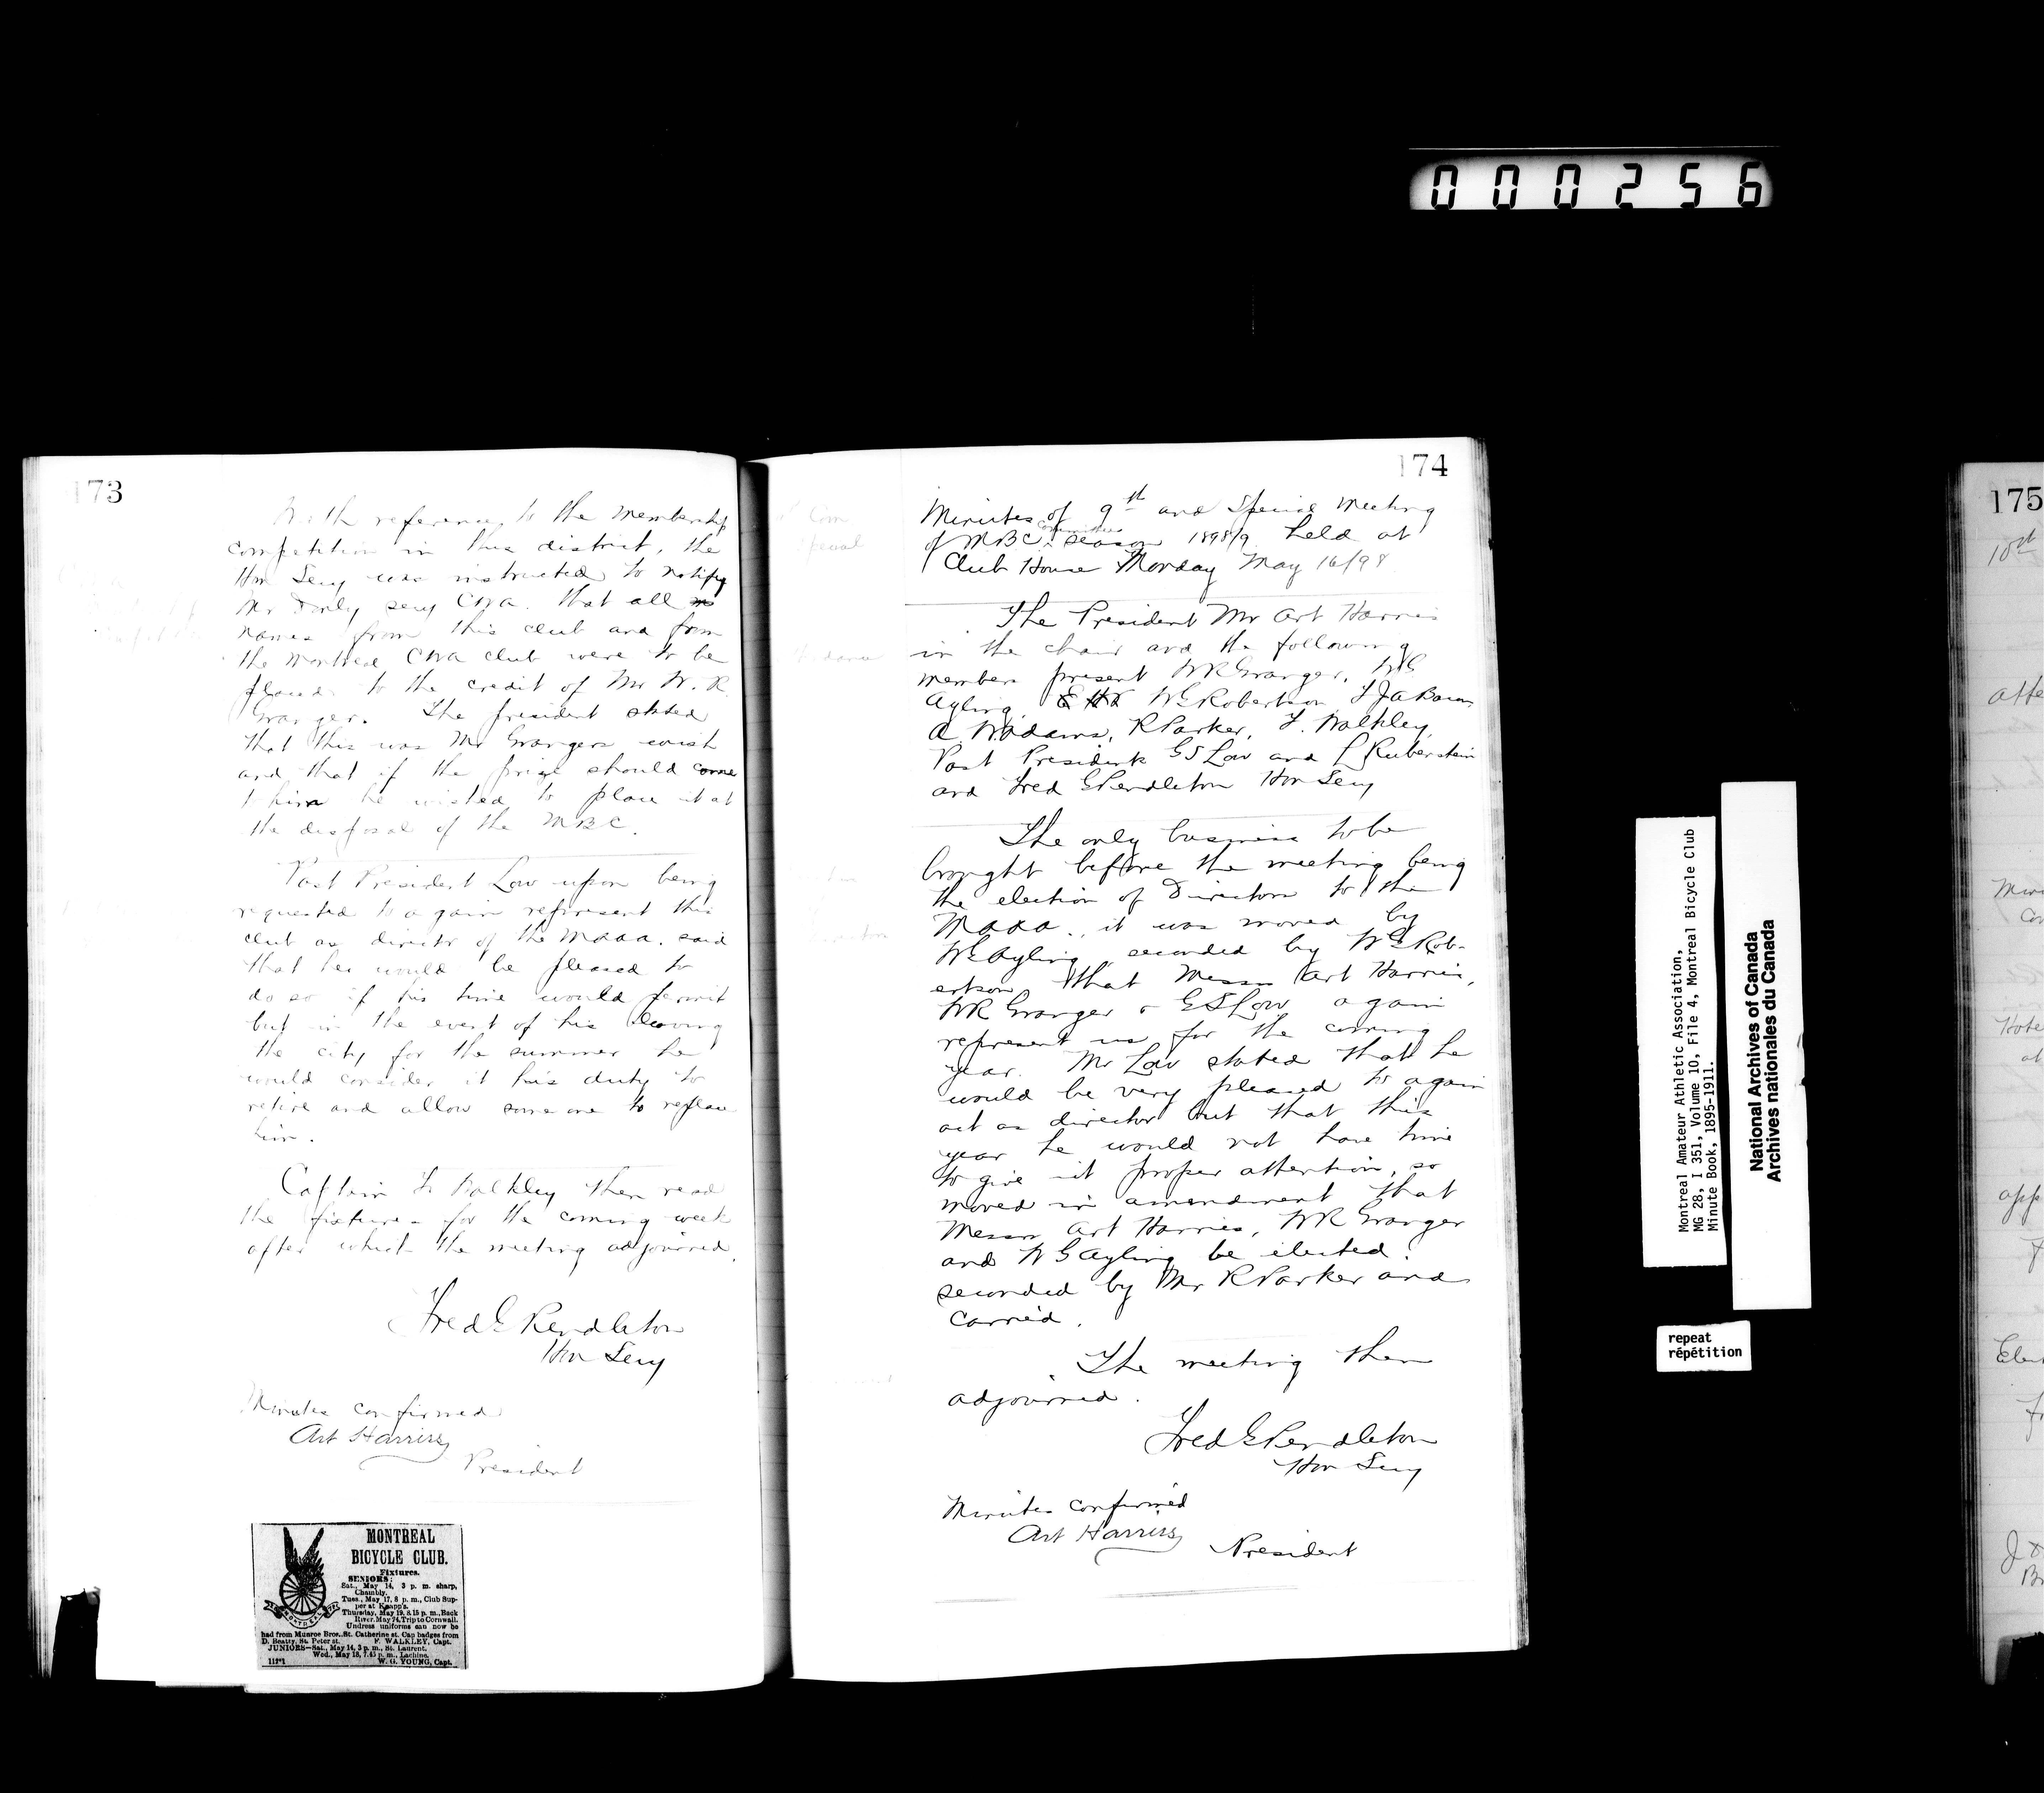 000256
173
With reference to the membership
competition in this district, the
Hon Secy was instructed to notify
Mr Donly secy CWA. that all
names from this club and from
the Montreal CWA club were to be
placed to the credit of Mr W. R.
Granger. The president stated
that this was Mr Grangers wish
and that if the prize should come
to him he wished to place it at
the disposal of the MBC.
Past President Low upon being
requested to again represent this
club as director of the MAAA. said
that he would be pleased to
do so if his time would permit
but in the event of his leaving
the city for the summer he
would consider it his duty to
retire and allow some one to replace
him.
Captain F. Walkley then read
the fixtures for the coming week
after which the meeting adjourned.
Fred G Pendleton
Hon Secy
Minutes confirmed
Art Harries
President
MONTREAL
BICYCLE CLUB.
Fixtures.
SENIORS:
Sat., May 14, 3 p. m. sharp,
Chambly.
Tues., May 17, 8 p. m., Club Sup-
per at Knapp's.
Thursday, May 19, 8.15 p. m., Back
River. May 24, Trip to Cornwall.
Undress uniforms can now be
had from Munroe Bros., St. Catherine st. Cap badges from
D. Beatty, St. Peter st. F. WALKLEY, Capt.
JUNIORS—Sat., May 14, 3 p. m., St. Laurent.
Wed., May 18, 7.45 p. m., Lachine.
W. G. YOUNG, Capt.
174
Com
Special
Minutes of 9th and Special Meeting
of MBC committee season 1898/9 held at
Club House Monday May 16/98
The President Mr Art Harries
in the chair and the following
members present WR Granger, WG
Ayling, WG Robertson, FJA
A. W Adams, R Parker, F. Walkley,
Past Presidents GS Low and L Rubenstein
and Fred G Pendleton Hon Secy
The only business to be
brought before the meeting being
the election of Directors to the
MAAA., it was moved by
WG Ayling, seconded by WG Rob-
ertson that Messrs Art Harries,
WR Granger & GS Low again
represent us for the coming
year. Mr Low stated that he
would be very pleased to again
act as director but that this
year he would not have time
to give it proper attention, so
moved in amendment that
Messrs Art Harries, WR Granger
and W G Ayling be elected.
seconded by Mr R Parker and
carried.
The meeting then
adjourned.
Fred G Pendleton
Hon Secy
Minutes confirmed
Art Harries
President
Montreal Amateur Athletic Association,
MG 28, I 351, Volume 10, File 4, Montreal Bicycle Club
Minute Book, 1895-1911.
National Archives of Canada
Archives nationales du Canada
repeat
répétition
175
10th